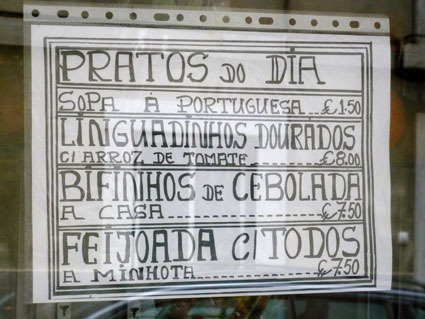 PRATOS DO DIA
SOPA À PORTUGUESA...€1.50
LINGUADINHOS DOURADOS
C/ ARROZ DE TOMATE.....€8.00
BIFINHOS DE CEBOLADA
A CASA..............€7.50
FEIJOADA C/ TODOS
A MINHOTA...........€7.50